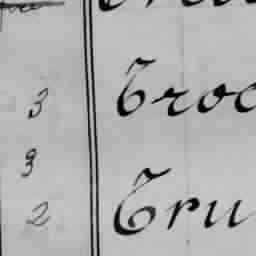 3 Troc
3
2 Tru